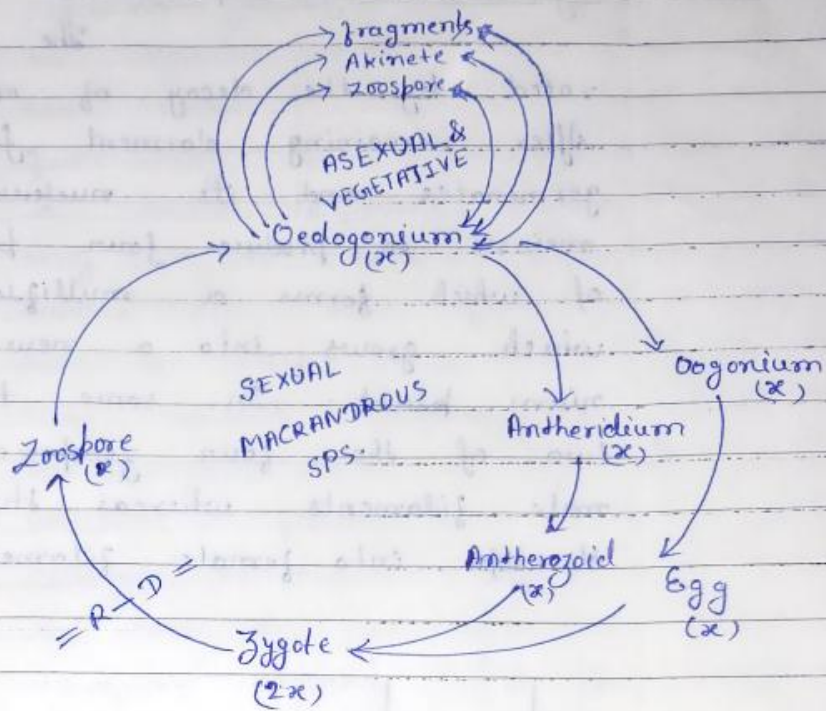 fragments
Akinete
Zoospore
ASEXUAL &
VEGETATIVE
Oedogonium
(x)
SEXUAL
MACRANDROUS
SPS.
Oogonium
(x)
Antheridium
(x)
Zoospore
(x)
Antherozoid
(x)
Egg
(x)
= R-D =
Zygote
(2x)